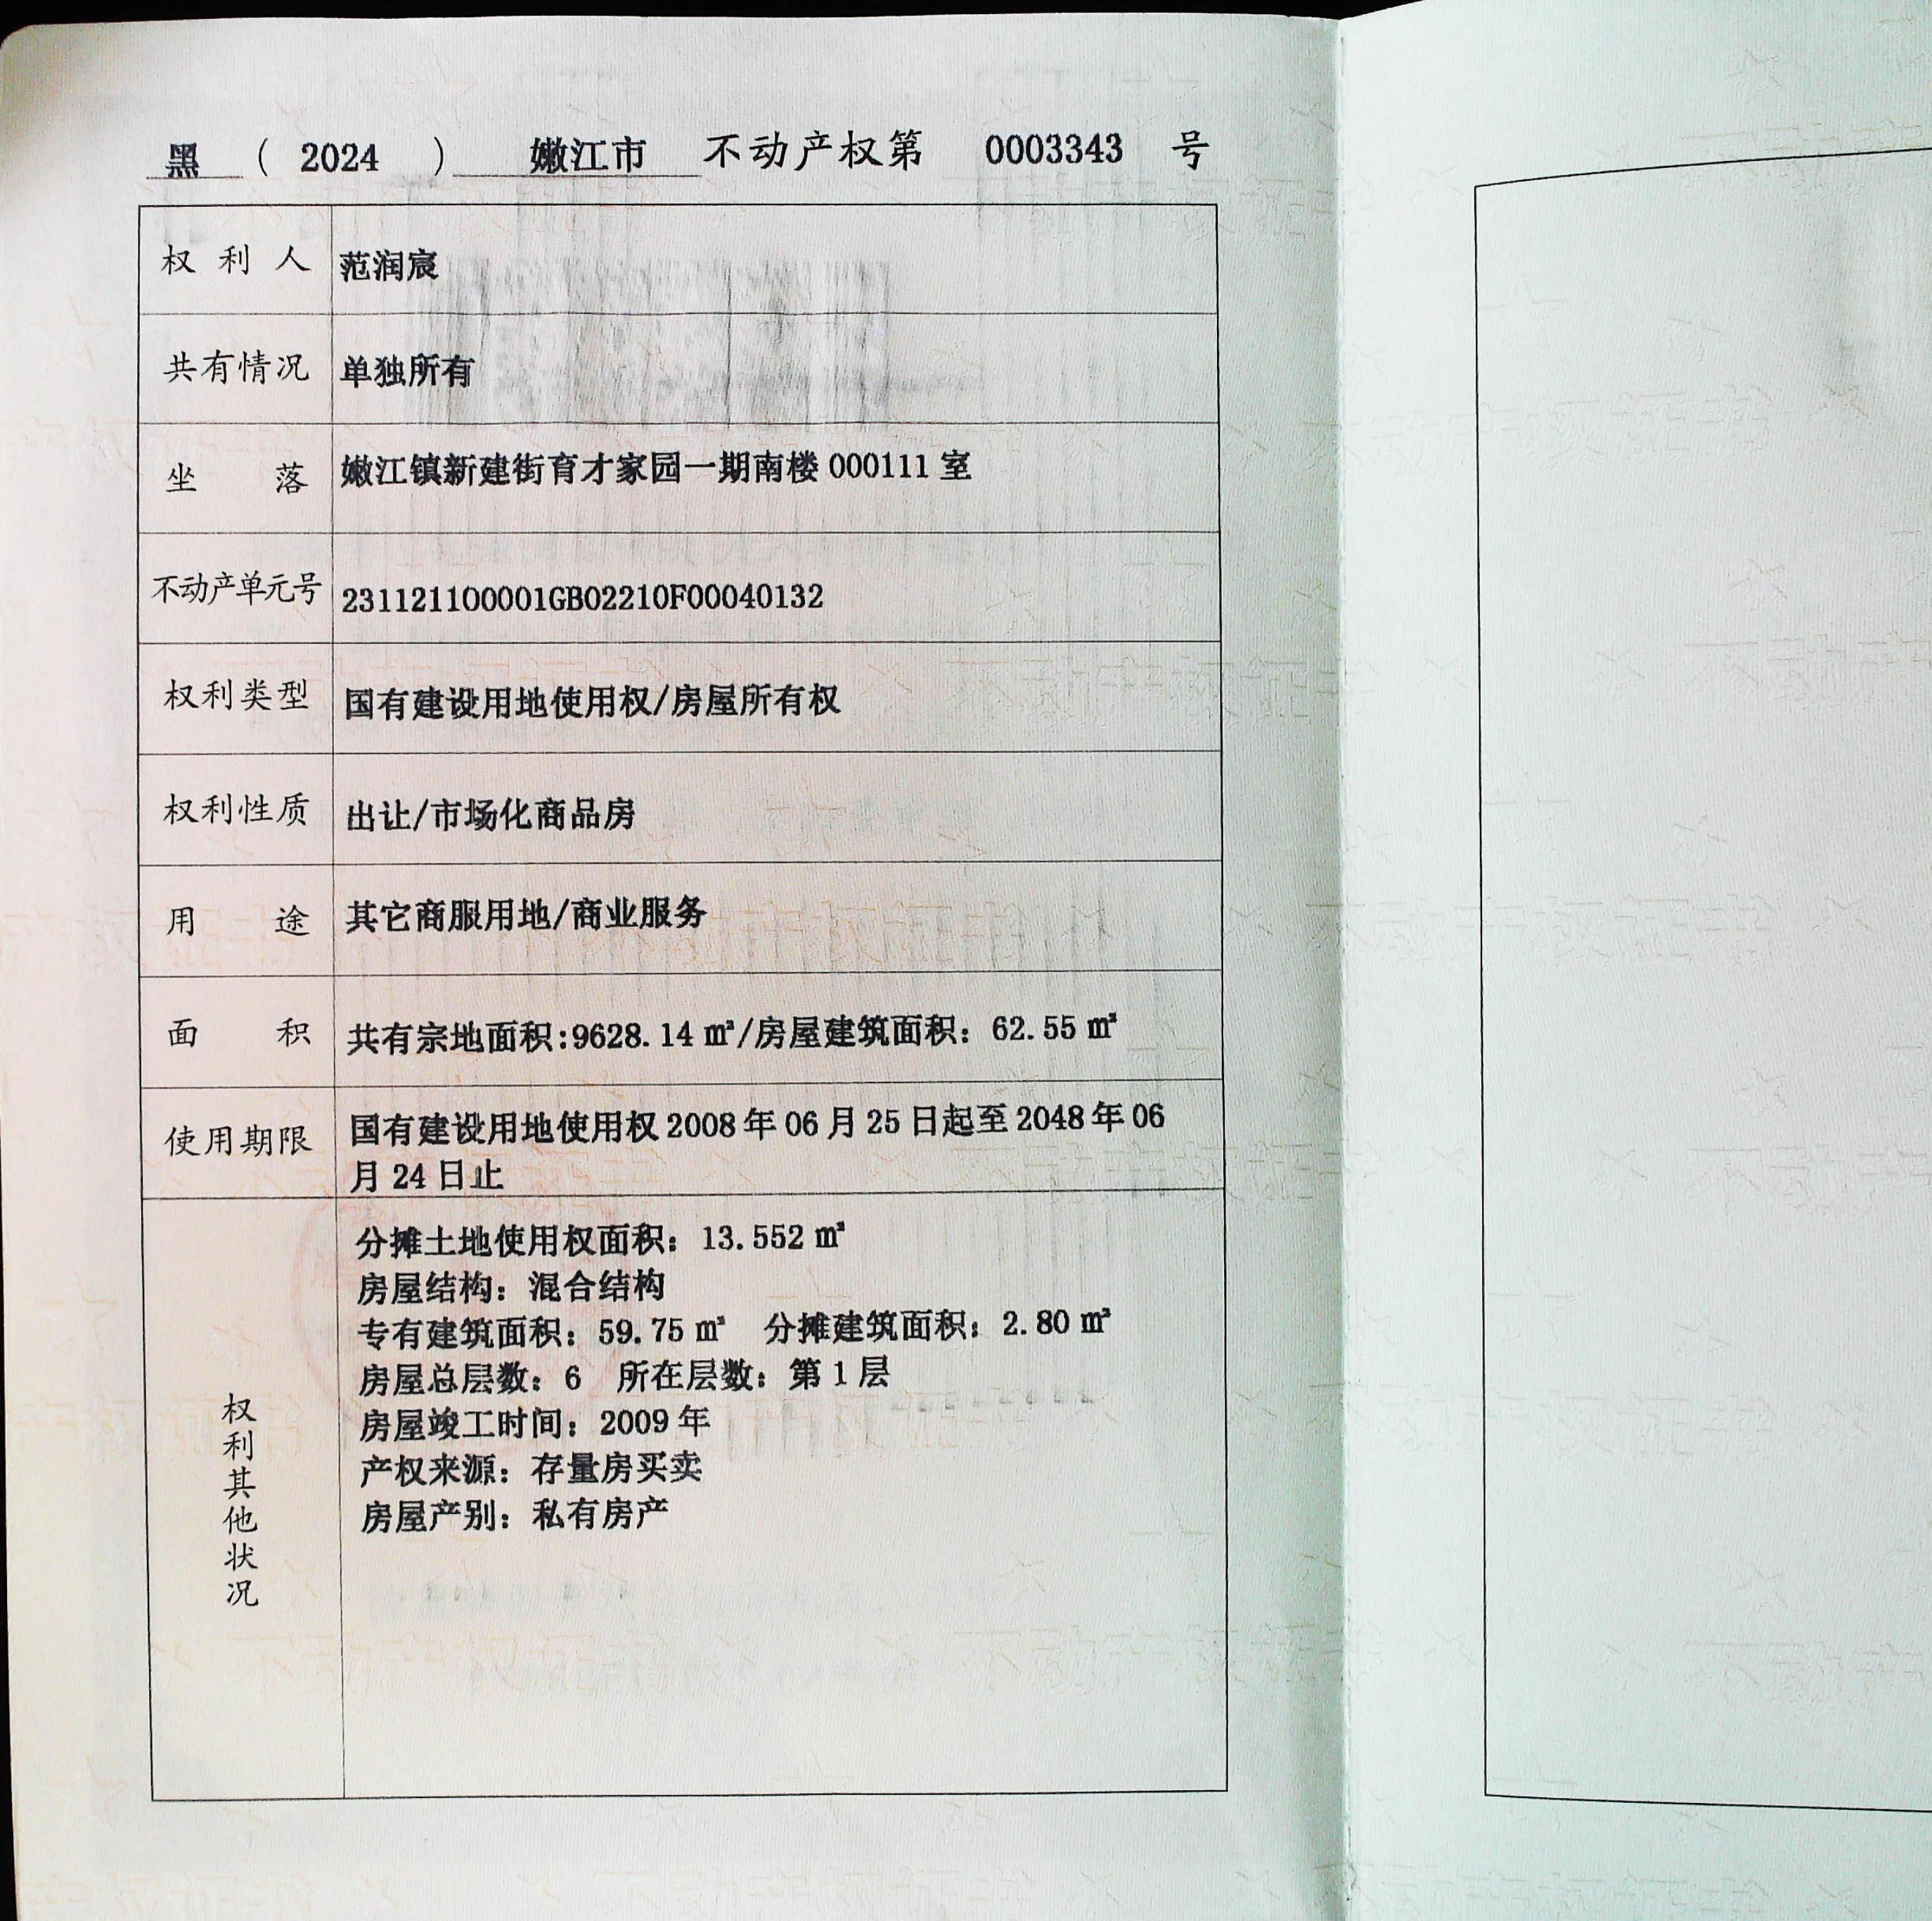 黑 ( 2024 ) 嫩江市 不动产权第 0003343 号
权利人 范润宸
共有情况 单独所有
坐落 嫩江镇新建街育才家园一期南楼 000111 室
不动产单元号 231121100001GB02210F00040132
权利类型 国有建设用地使用权/房屋所有权
权利性质 出让/市场化商品房
用途 其它商服用地/商业服务
面积 共有宗地面积:9628.14 ㎡/房屋建筑面积: 62.55 ㎡
使用期限 国有建设用地使用权 2008 年 06 月 25 日起至 2048 年 06
月 24 日止
权利其他状况
分摊土地使用权面积: 13.552 ㎡
房屋结构: 混合结构
专有建筑面积: 59.75 ㎡ 分摊建筑面积: 2.80 ㎡
房屋总层数: 6 所在层数: 第 1 层
房屋竣工时间: 2009 年
产权来源: 存量房买卖
房屋产别: 私有房产